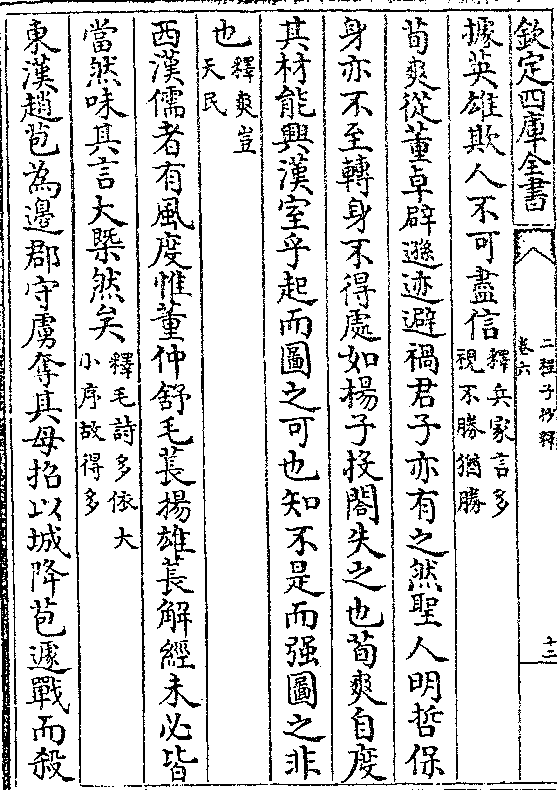 欽定四庫全書
二程子抄釋
卷六
十二
據英雄欺人不可盡信釋兵家言多
視不勝猶勝
荀爽從董卓辟遜迹避禍君子亦有之然聖人明哲保
身亦不至轉身不得處如楊子投閣失之也荀爽自度
其材能興漢室乎起而圖之可也知不是而强圖之非
也釋爽豈
天民
西漢儒者有風度惟董仲舒毛萇揚雄萇解經未必皆
當然味其言大槩然矣釋毛詩多依大
小序故得多
東漢趙苞為邊郡守虜奪其母招以城降苞遽戰而殺